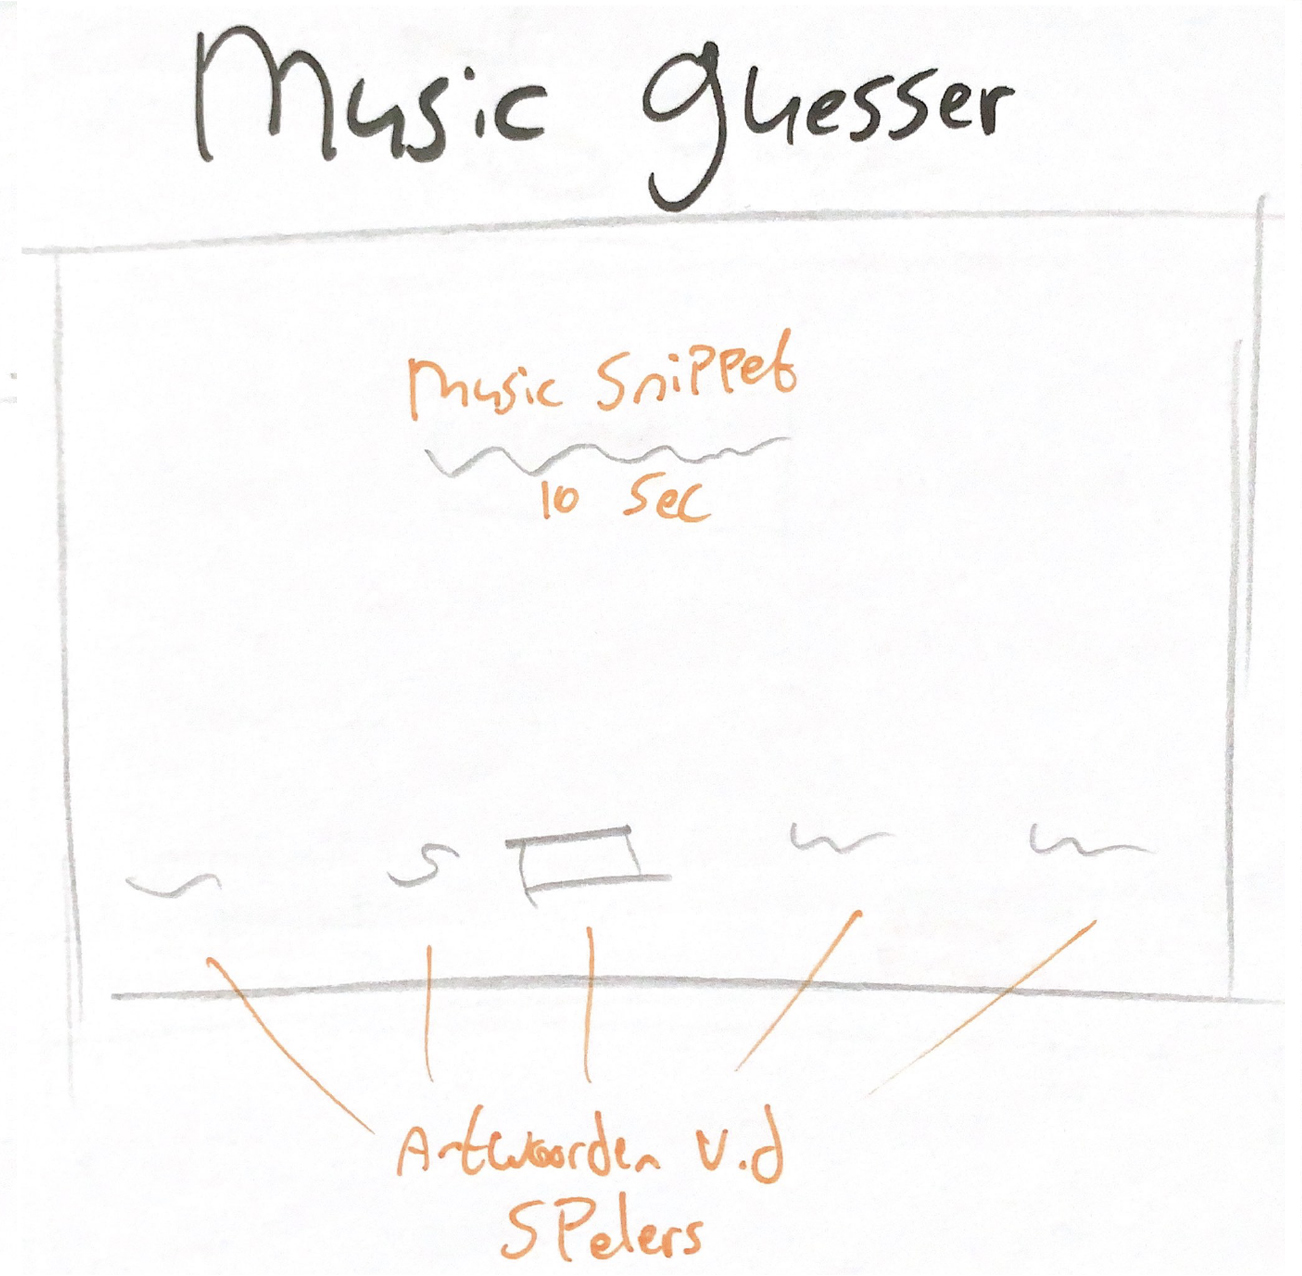 Music guesser
Music Snippet
10 Sec
Antwoorden v.d
Spelers